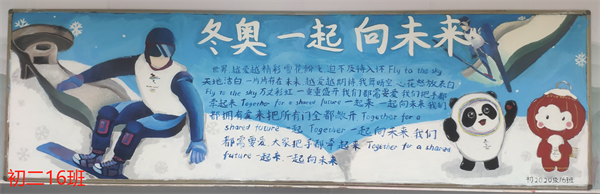 冬奥 一起向未来
世界 越爱越精彩 雪花纷飞 迫不及待入怀 Fly to the sky
天地洁白 一片片存在未来 越爱越期待 我开晴空 心花怒放来自
Fly to the sky 万丈彩虹 一重重盛开 我们都需要爱 我们把手都
牵起来 Together for a shared future 一起来 一起向未来 我们
都拥有爱 来把所有门全都敞开 Together for a
shared future 一起 Together 一起向未来 我们
都需要爱 大家把手都牵起来 Together for a shared
future 一起来 一起向未来
初2020级16班
初二16班